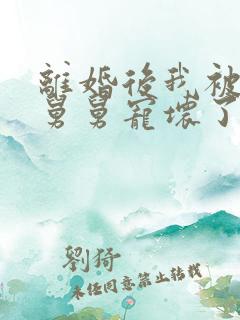 離婚後我被
舅舅寵壞了
劉猗
未经同意禁止转载